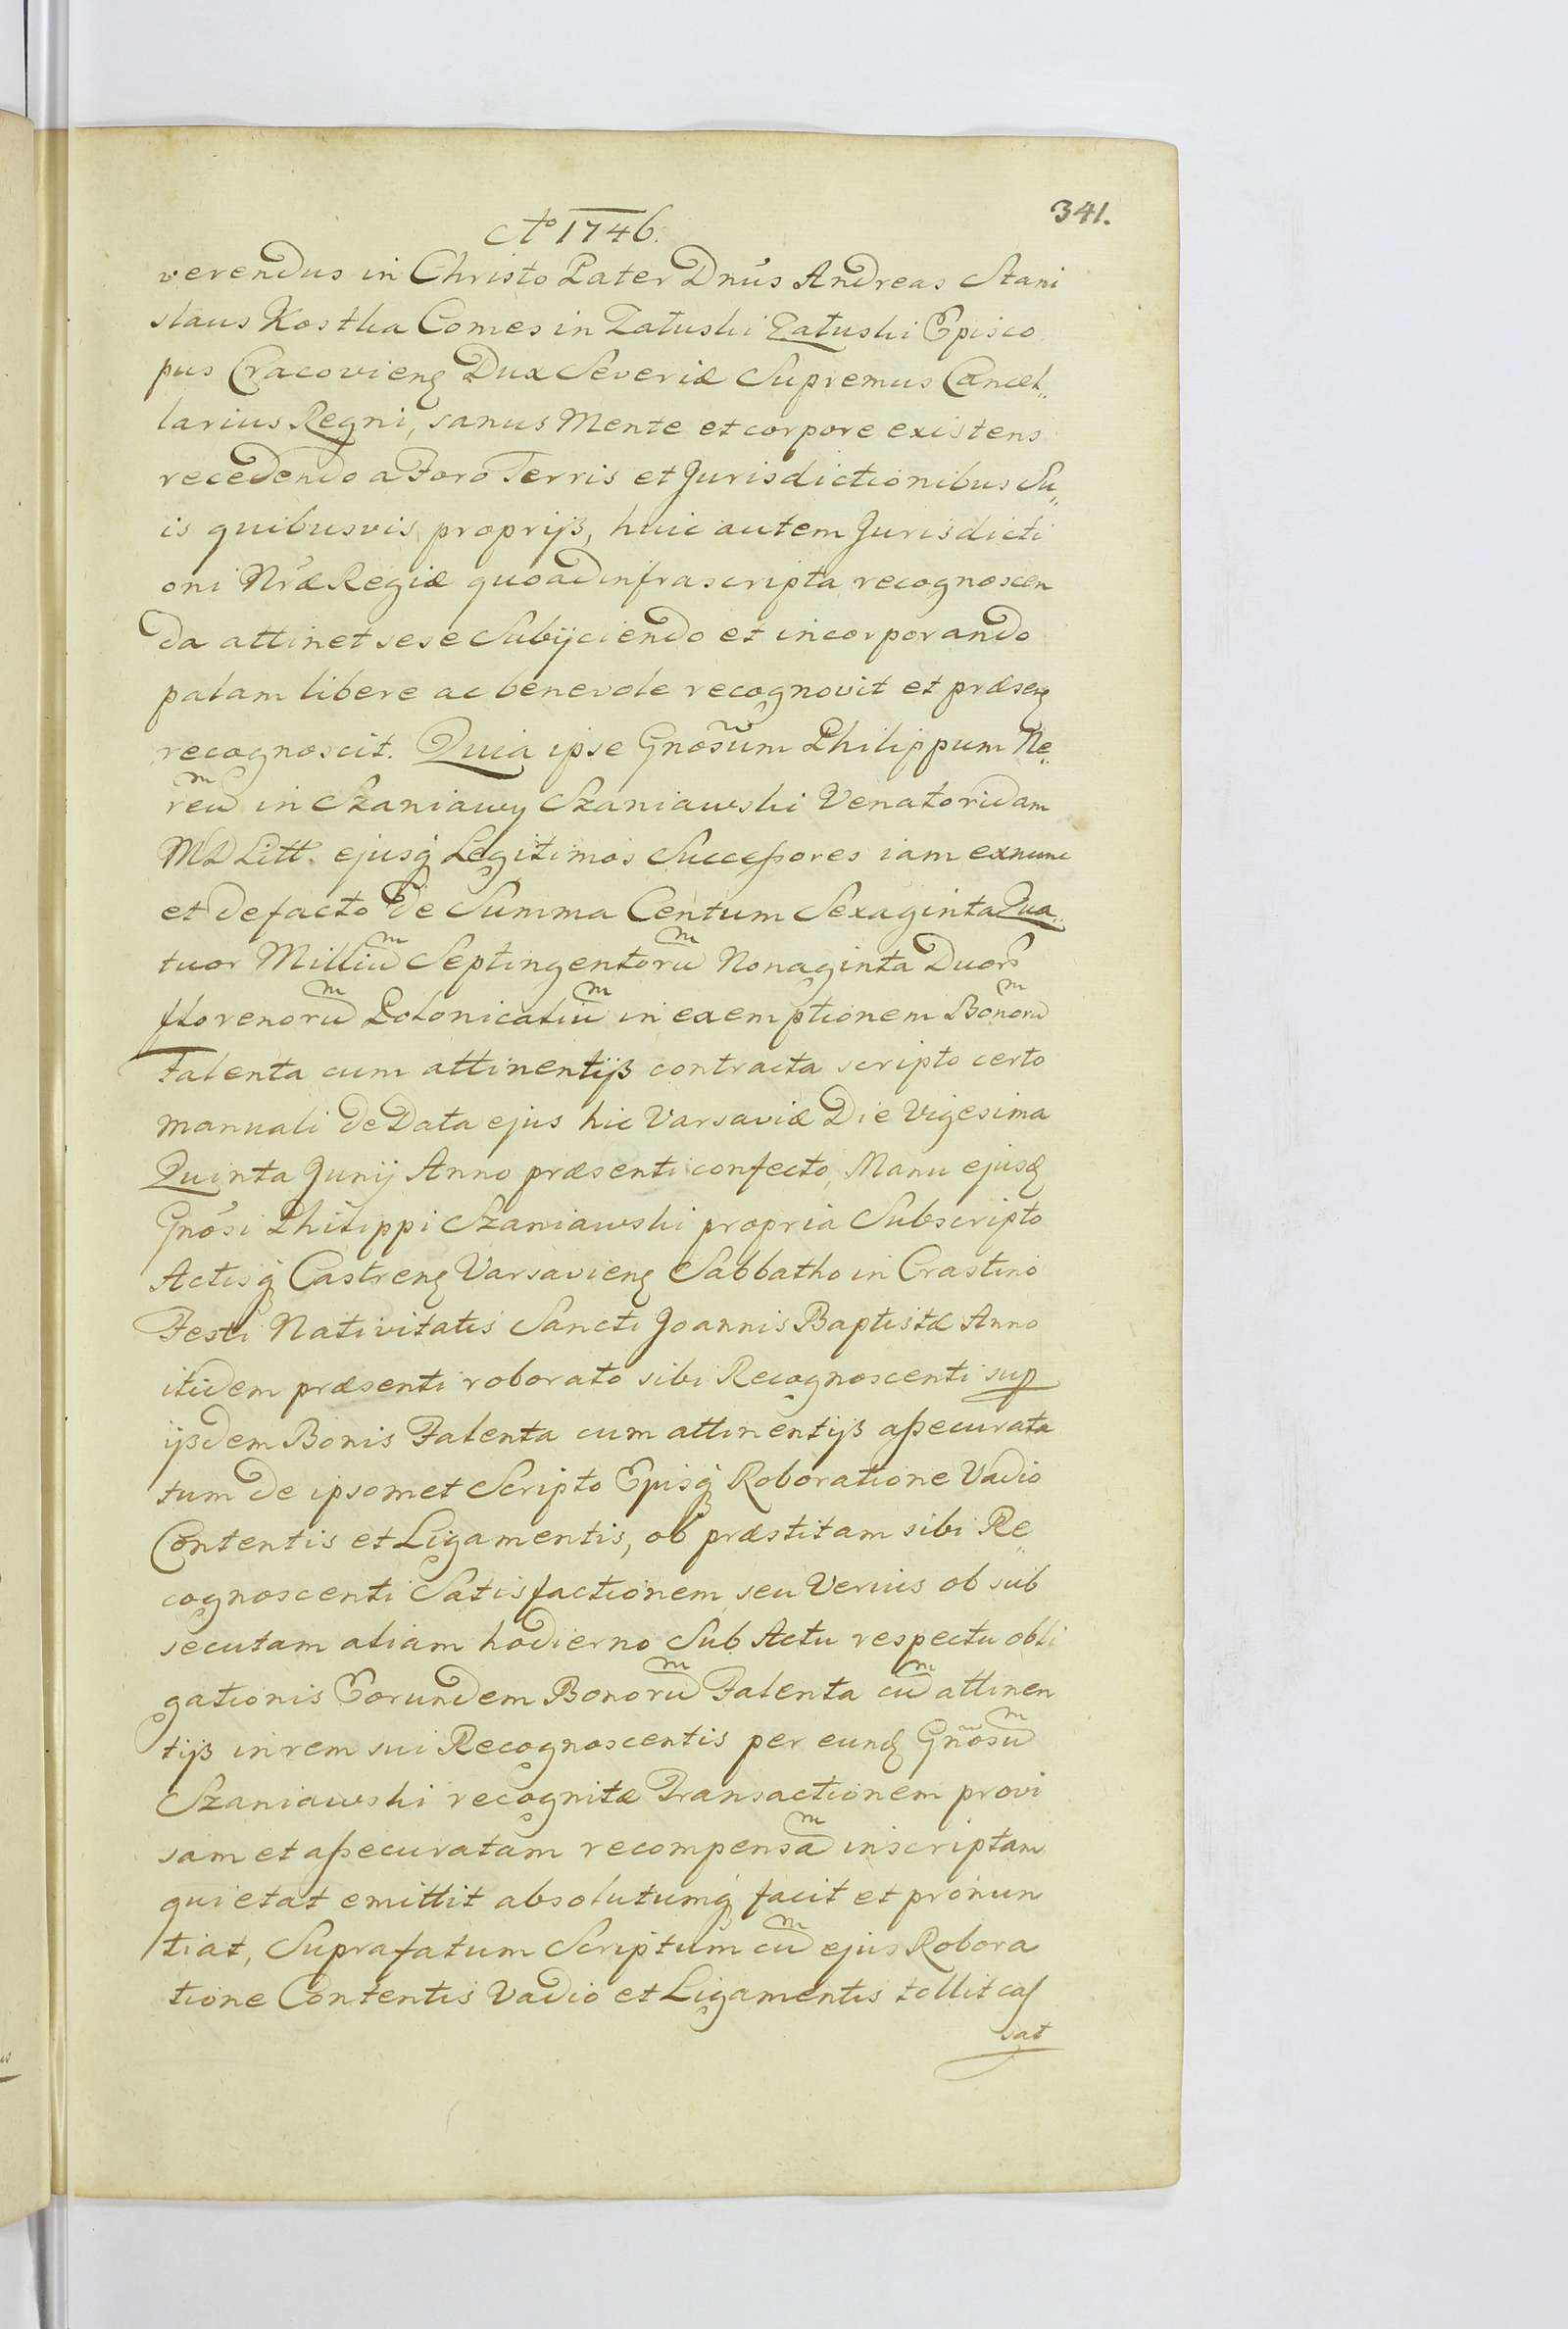 341.
Ao 1746.
verendus in Christo Pater Dnus Andreas Stani
slaus Kostka Comes in Załuski Załuski Episco
pus Cracovieng Dux Severiæ Supremus Cancel„
larius Regni, sanus Mente et corpore existens
recedendo a Foro Terris et Jurisdictionibus Su„
is quibusvis proprijs, huic autem Jurisdicti
oni Nræ Regiæ quoad infrascripta recognoscen
da attinet sese Subijciendo et incorporando
palam libere ac benevole recognovit et præseng
recognoscit. Quia ipse Gnosum Philippum Ne„
reum in Szaniawy Szaniawski Venatoridam
MD Litt. ejusq Legitimos Successores iam exnunc
et defacto de Summa Centum Sexaginta Qua„
tuor Millium Septingentorum Nonaginta Duor
florenorum Polonicalium in exemptionem Bonorum
Falenta cum attinentijs contracta scripto certo
manuali de Data ejus hic Varsaviæ Die Vigesima
Quinta Junij Anno præsenti confecto, Manu ejusd
Gnosi Philippi Szaniawski propria Subscripto
Actisq Castreng Varsavieng Sabbatho in Crastino
Festi Nativitatis Sancti Joannis Baptistæ Anno
itidem præsenti roborato sibi Recognoscenti sup
ijsdem Bonis Falenta cum attinentijs assecurata
tum de ipsomet Scripto Ejusq Roboratione Vadio
Contentis et Ligamentis, ob præstitam sibi Re„
cognoscenti Satisfactionem, seu Verius ob sub
secutam aliam hodierno Sub Actu respectu obli
gationis Eorundem Bonorum Falenta cum attinen
tijs in rem sui Recognoscentis per eund Gnosum
Szaniawski recognitæ Transactionem provi
sam et assecuratam recompensam inscriptam
quietat emittit absolutumq facit et pronun
tiat, Suprafatum Scriptum cum ejus Robora
tione Contentis Vadio et Ligamentis tollit cas
sat